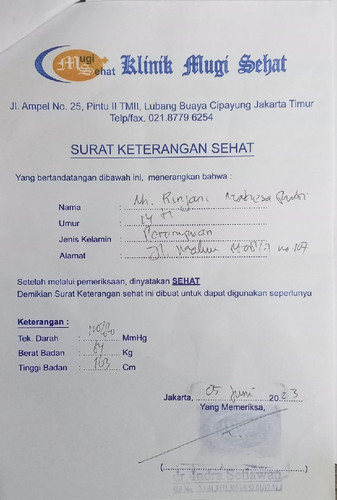 Mugi Sehat Klinik Mugi Sehat
Jl. Ampel No. 25, Pintu II TMII, Lubang Buaya Cipayung Jakarta Timur
Telp/fax. 021.8779 6254
SURAT KETERANGAN SEHAT
Yang bertandatangan dibawah ini, menerangkan bahwa :
Nama : Rinjani
Umur :
Jenis Kelamin : Perempuan
Alamat : Jl.
Setelah melalui pemeriksaan, dinyatakan SEHAT
Demikian Surat Keterangan sehat ini dibuat untuk dapat digunakan seperlunya
Keterangan :
Tek. Darah : MmHg
Berat Badan : Kg
Tinggi Badan : 163 Cm
Jakarta, 05 Juni 2023
Yang Memeriksa,
dr. Indra Setiawan